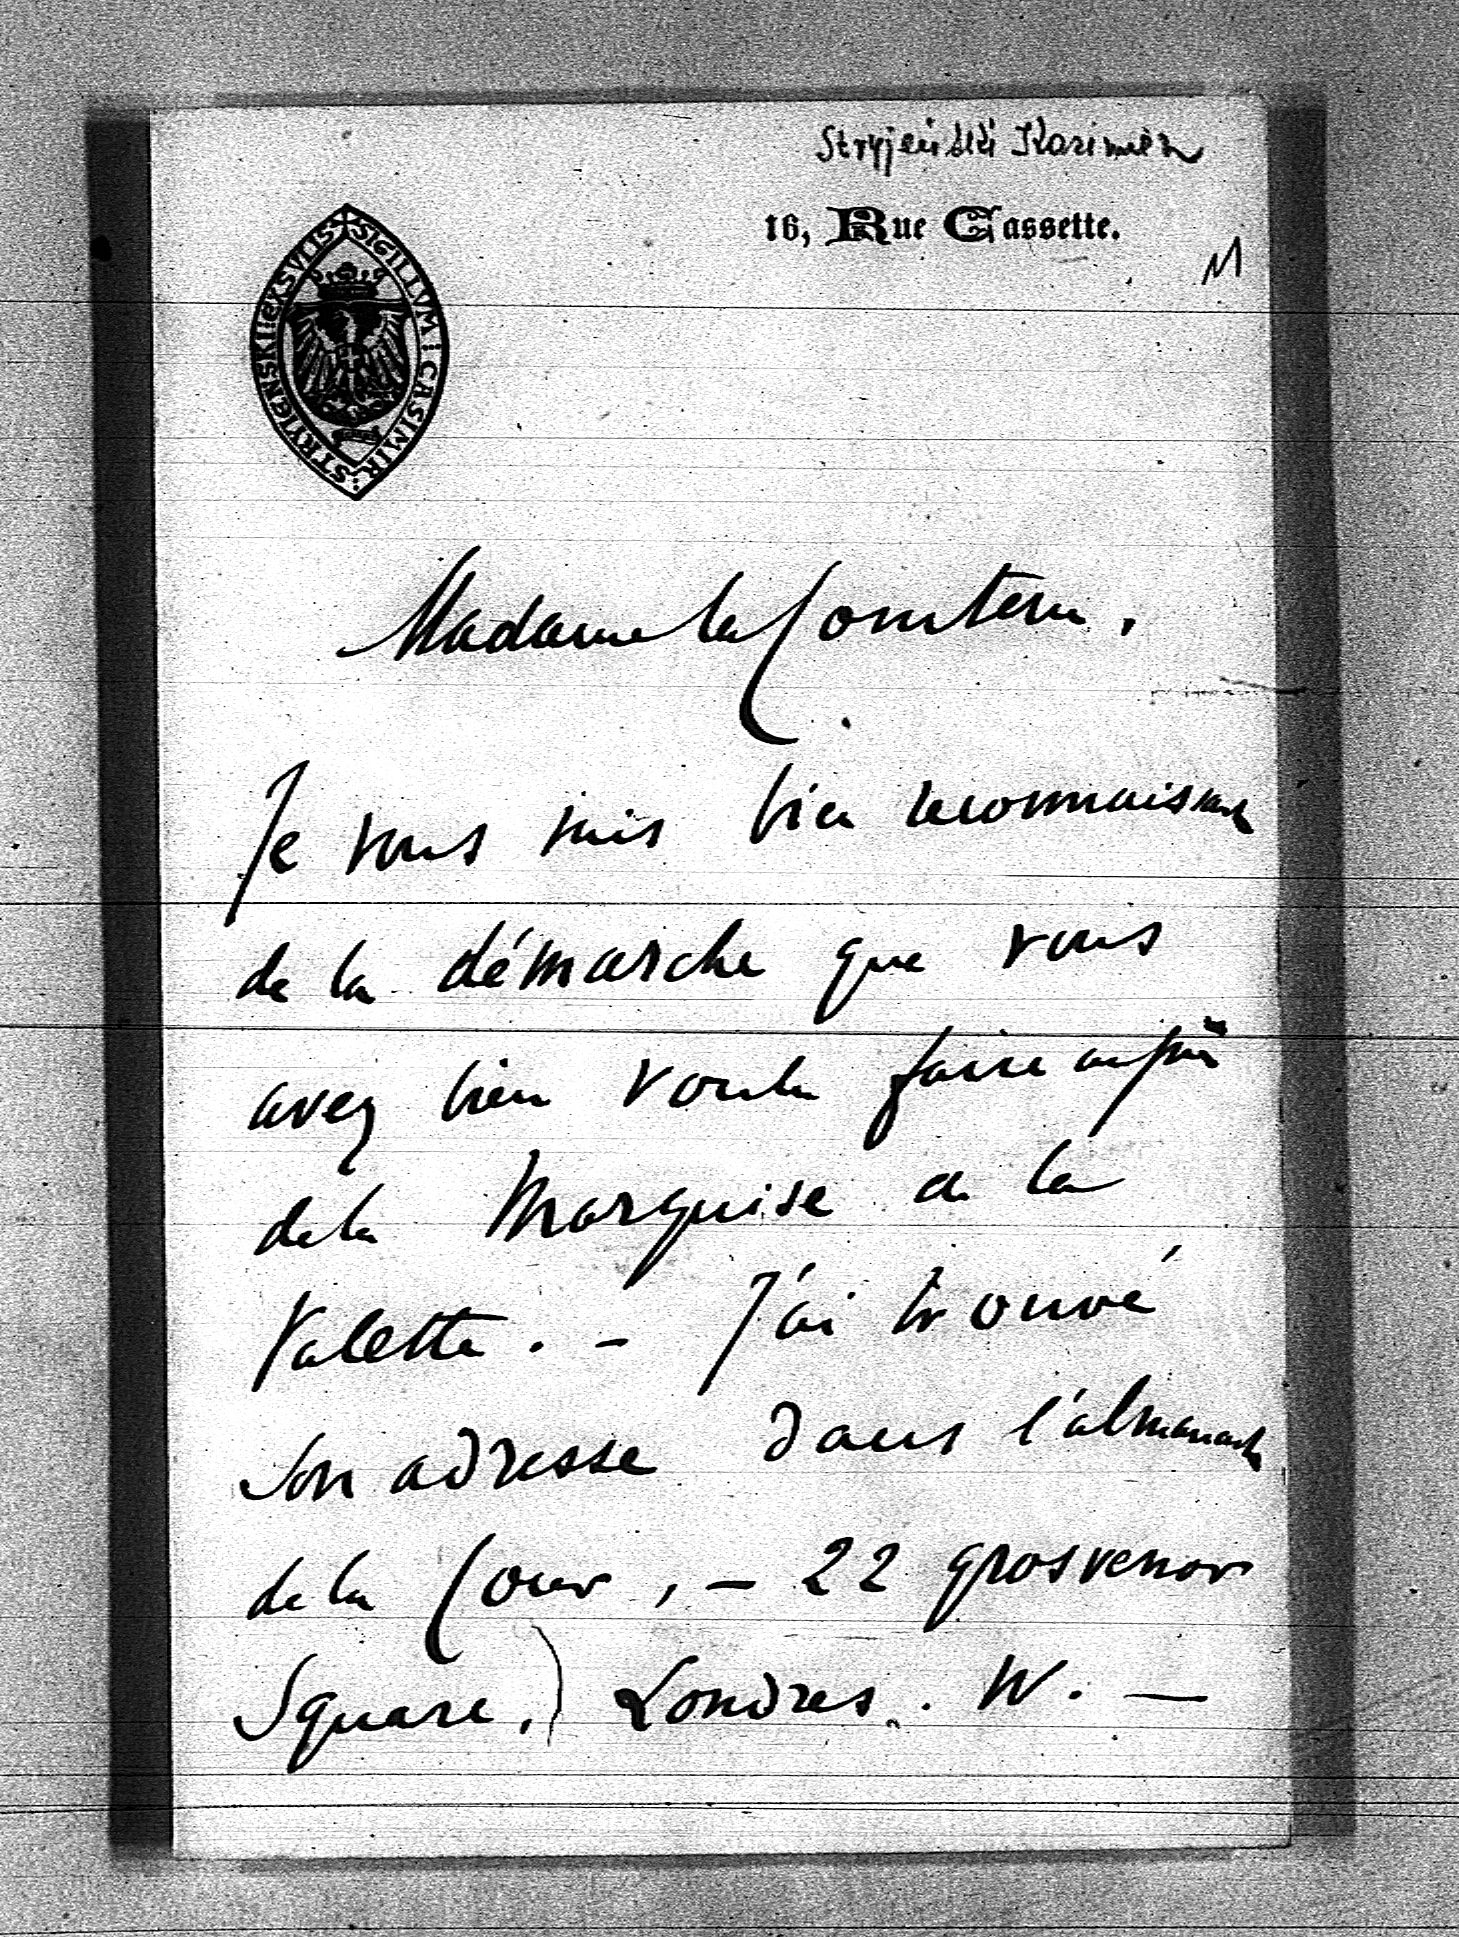 Stryjeński Kazimierz
16, Rue Cassette.
SIGILLVM : CASIMIR : STRYIENSKI : EXSVLIS
Madame la Comtesse,
Je vous suis bien reconnaissant
de la démarche que vous
avez bien voulu faire auprès
de la Marquise de la
Valette. – J'ai trouvé
son adresse dans l'almanach
de la Cour, – 22 grosvenor
Square, Londres. W. –